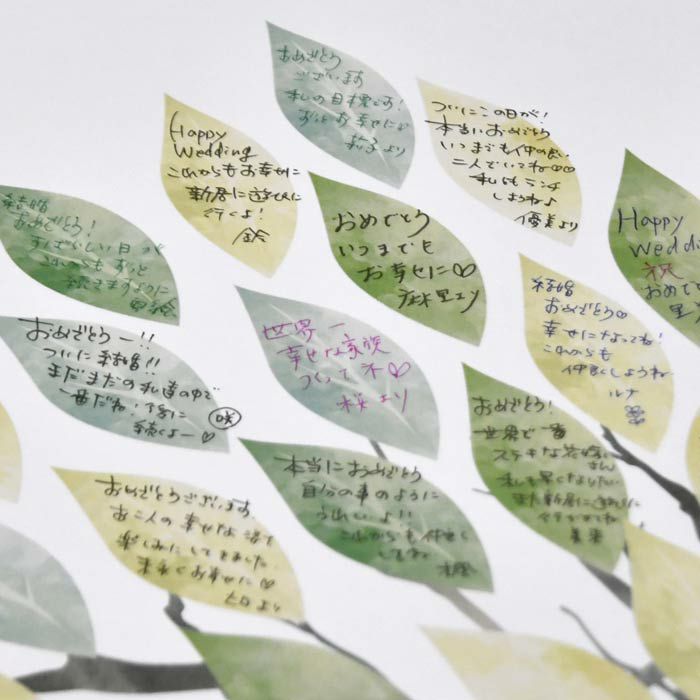 おめでとう
ございます
私の目標です!
ずっとお幸せに♡
莉子より
ついにこの日が!
本当におめでとう
いつまでも仲の良い
二人でいてね♡♡
私ともランチ
しようね♪
優美より
Happy
Wedding
これからもお幸せに
新居に遊びに
行くよ!
鈴
おめでとう
いつまでも
お幸せに♡
麻里より
Happy
Weddin
祝
おめでと
里
結婚
おめでとう!
すばらしい日が
これからもずっと
続きますように
結婚
おめでとう♡
幸せになってね!
これからも
仲良くしようね
ルナ
世界一
幸せな家族
つくってネ♡
桜より
おめでとうー!!
ついに結婚!!
まだまだの私達の中で
一番だね!
続くよー♡
咲
おめでとう!
世界で一番
ステキな花嫁
さん
私も早くなりたい
また新居に
本当におめでとう
自分の事のように
うれしいよ!!
これからも仲良く
してね
おめでとうございます。
お二人の幸せな姿を
楽しみにしてました。
末永くお幸せに♡
より